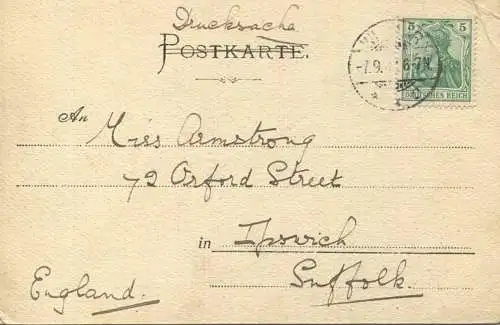 Drucksache
POSTKARTE.
5 5
-7.9. 6-7N.
DEUTSCHES REICH
An Miss Armstrong
72 Orford Street
in Ipswich
Suffolk.
England.